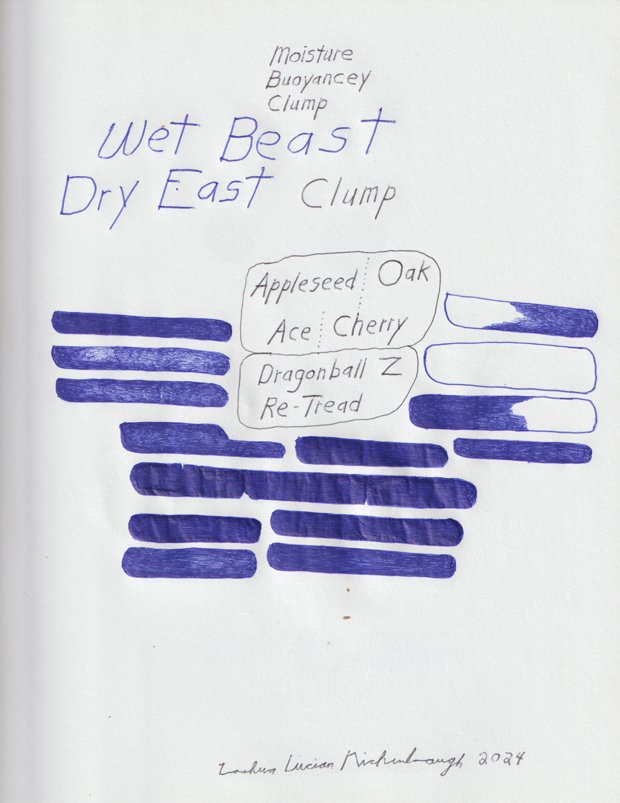 Moisture
Buoyancey
Clump
Wet Beast
Dry East Clump
Appleseed Oak
Ace Cherry
Dragonball Z
Re-Tread
Lucian 2024